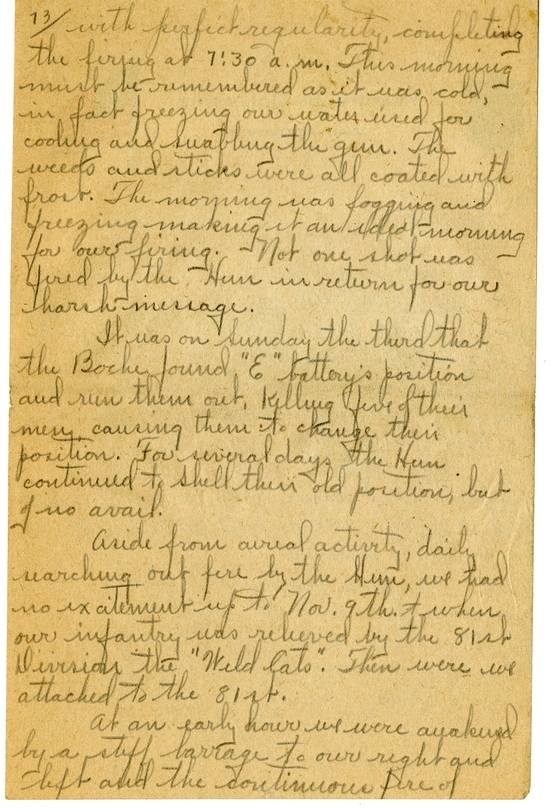 13/ with perfect regularity, completing
the firing at 7:30 a.m. This morning
must be remembered as it was cold,
in fact freezing our water used for
cooling and swabbing the gun. The
weeds and sticks were all coated with
frost. The morning was fogging and
freezing making it an ideal morning
for our firing. Not one shot was
fired by the Hun in return for our
harsh message.
It was on Sunday the third that
the Boche found "E" battery's position
and run them out, killing five of their
men, causing them to change their
position. For several days the Hun
continued to shell their old position, but
of no avail.
Aside from aerial activity, daily
searching out fire by the Hun, we had
no excitement up to Nov. 9th. + when
our infantry was relieved by the 81st
Division the "Wild Cats". Then were we
attached to the 81st.
At an early hour we were awakened
by a stiff barrage to our right and
left and the continuous fire of